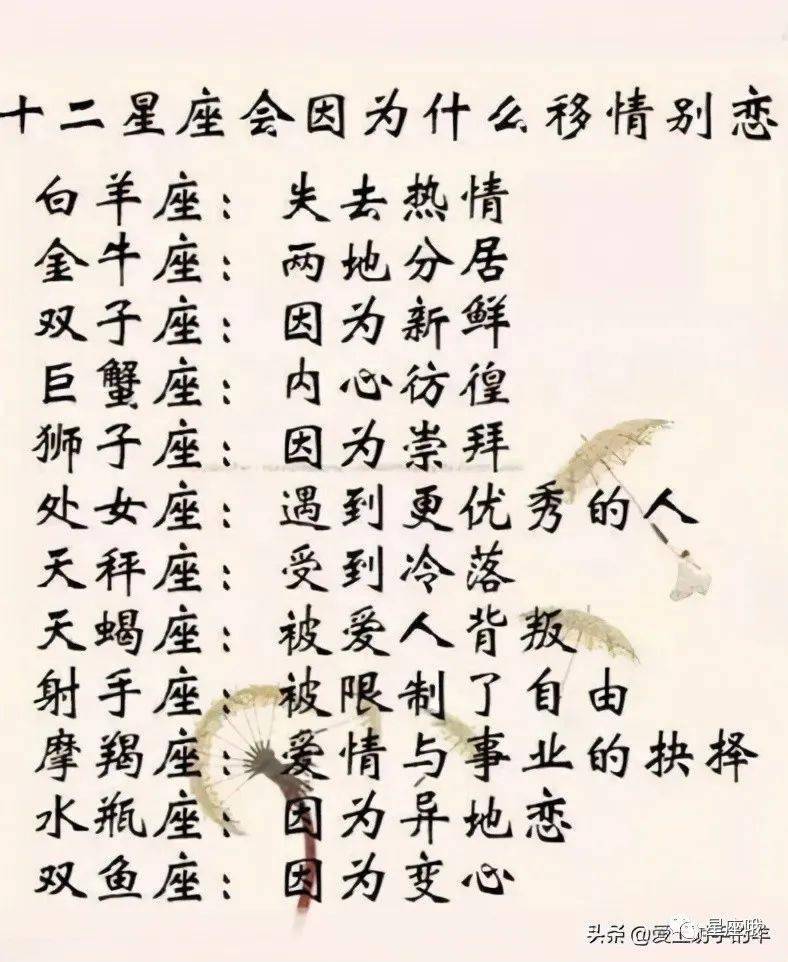 十二星座会因为什么移情别恋
白羊座：失去热情
金牛座：两地分居
双子座：因为新鲜
巨蟹座：内心彷徨
狮子座：因为崇拜
处女座：遇到更优秀的人
天秤座：受到冷落
天蝎座：被爱人背叛
射手座：被限制了自由
摩羯座：爱情与事业的抉择
水瓶座：因为异地恋
双鱼座：因为变心
头条 @爱上射手的羊
星座哦